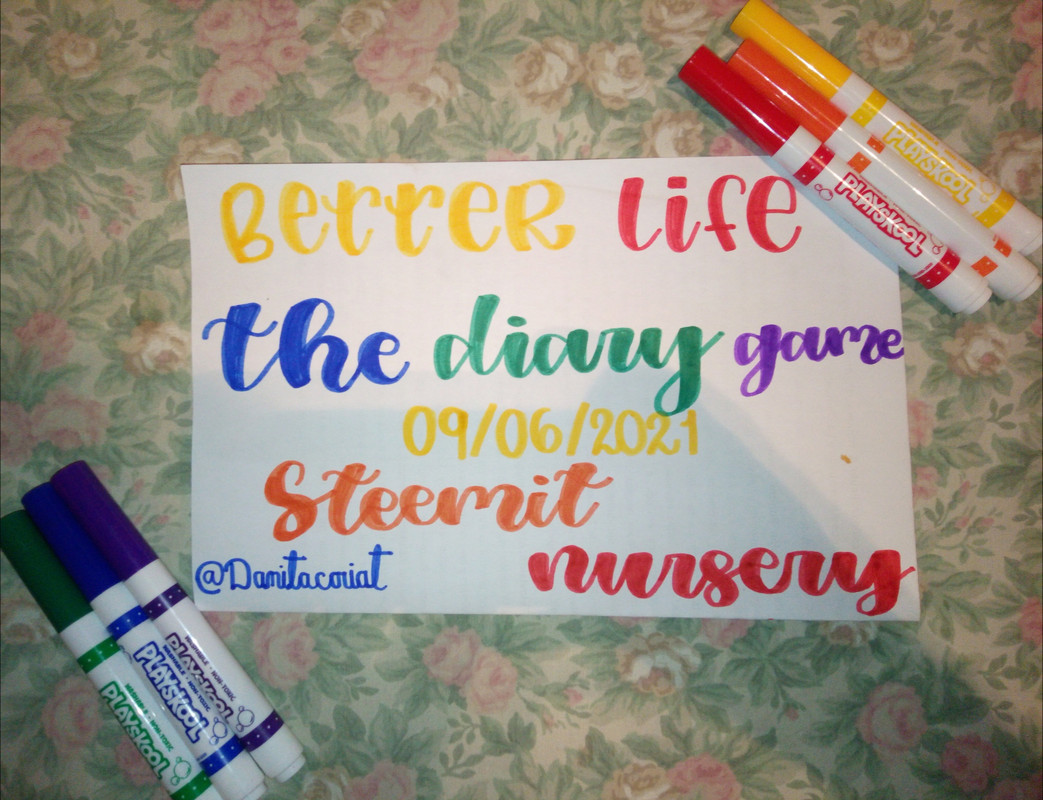 Better life
the diary game
09/06/2021
Steemit
@Danitacoriat
nursery
PLAYSKOOL
PLAYSKOOL
PLAYSKOOL
PLAYSKOOL
PLAYSKOOL
PLAYSKOOL